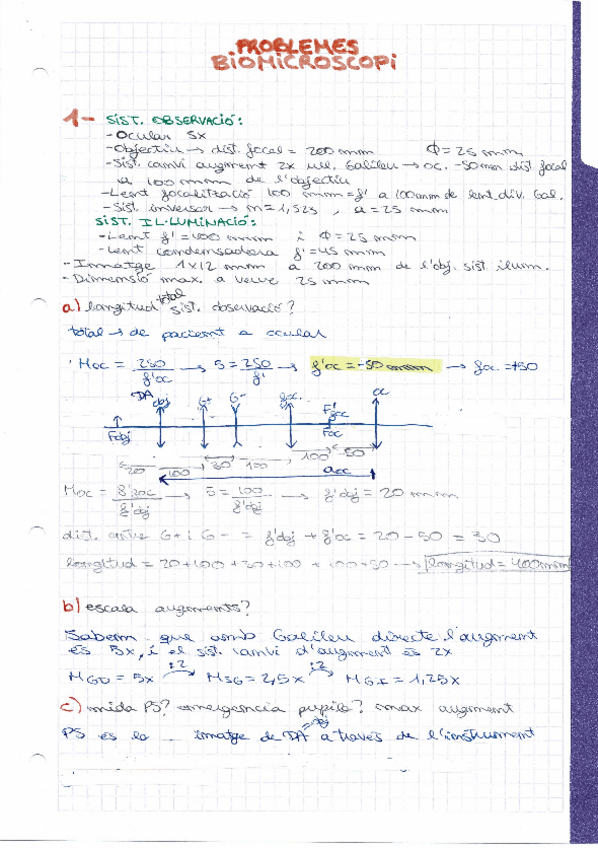 PROBLEMES
BIOMICROSCOPI
1- SIST. OBSERVACIÓ:
- Ocular 5x
- Objectiu → dist. focal = 200 mm Φ = 25 mm
- Sist. canvi augment 2x ull. Galileu → oc. -50mm dist focal
a 100 mm de l'objectiu
- Lent focalització 100 mm = f' a 100mm de lent. div. Gal.
- Sist. inversor → n = 1,523 , a = 25 mm
SIST. IL·LUMINACIÓ:
- Lent f' = 400 mm i Φ = 25 mm
- Lent condensadora f' = 45 mm
- Imatge 1x12 mm a 200 mm de l'obj. sist. ilum.
- Dimensió max. a veure 25 mm
a) longitud total sist. observació?
total → de pacient a ocular
Moc = 250/f'oc → 5 = 250/f' → f'oc = -50 mm → foc = +50
DA obj G+ G- foc. oc
Fobj F'foc Foc
20 100 30 100 100 50
aoc
Moc = f'foc/f'obj → 5 = 100/f'obj → f'obj = 20 mm
dist. entre G+ i G- = f'obj + f'oc = 20 - 50 = 30
longitud = 20+100+30+100 + 100+50 → longitud = 400mm
b) escala augments?
Sabem que amb Galileu directe l'augment
és 5x, i el sist. canvi d'augment és 2x
:2 :2
MGD = 5x MSG = 2,5x MGI = 1,25x
c) mida PS? emergencia pupila? max augment
PS és la imatge de DA = obj a través de l'instrument